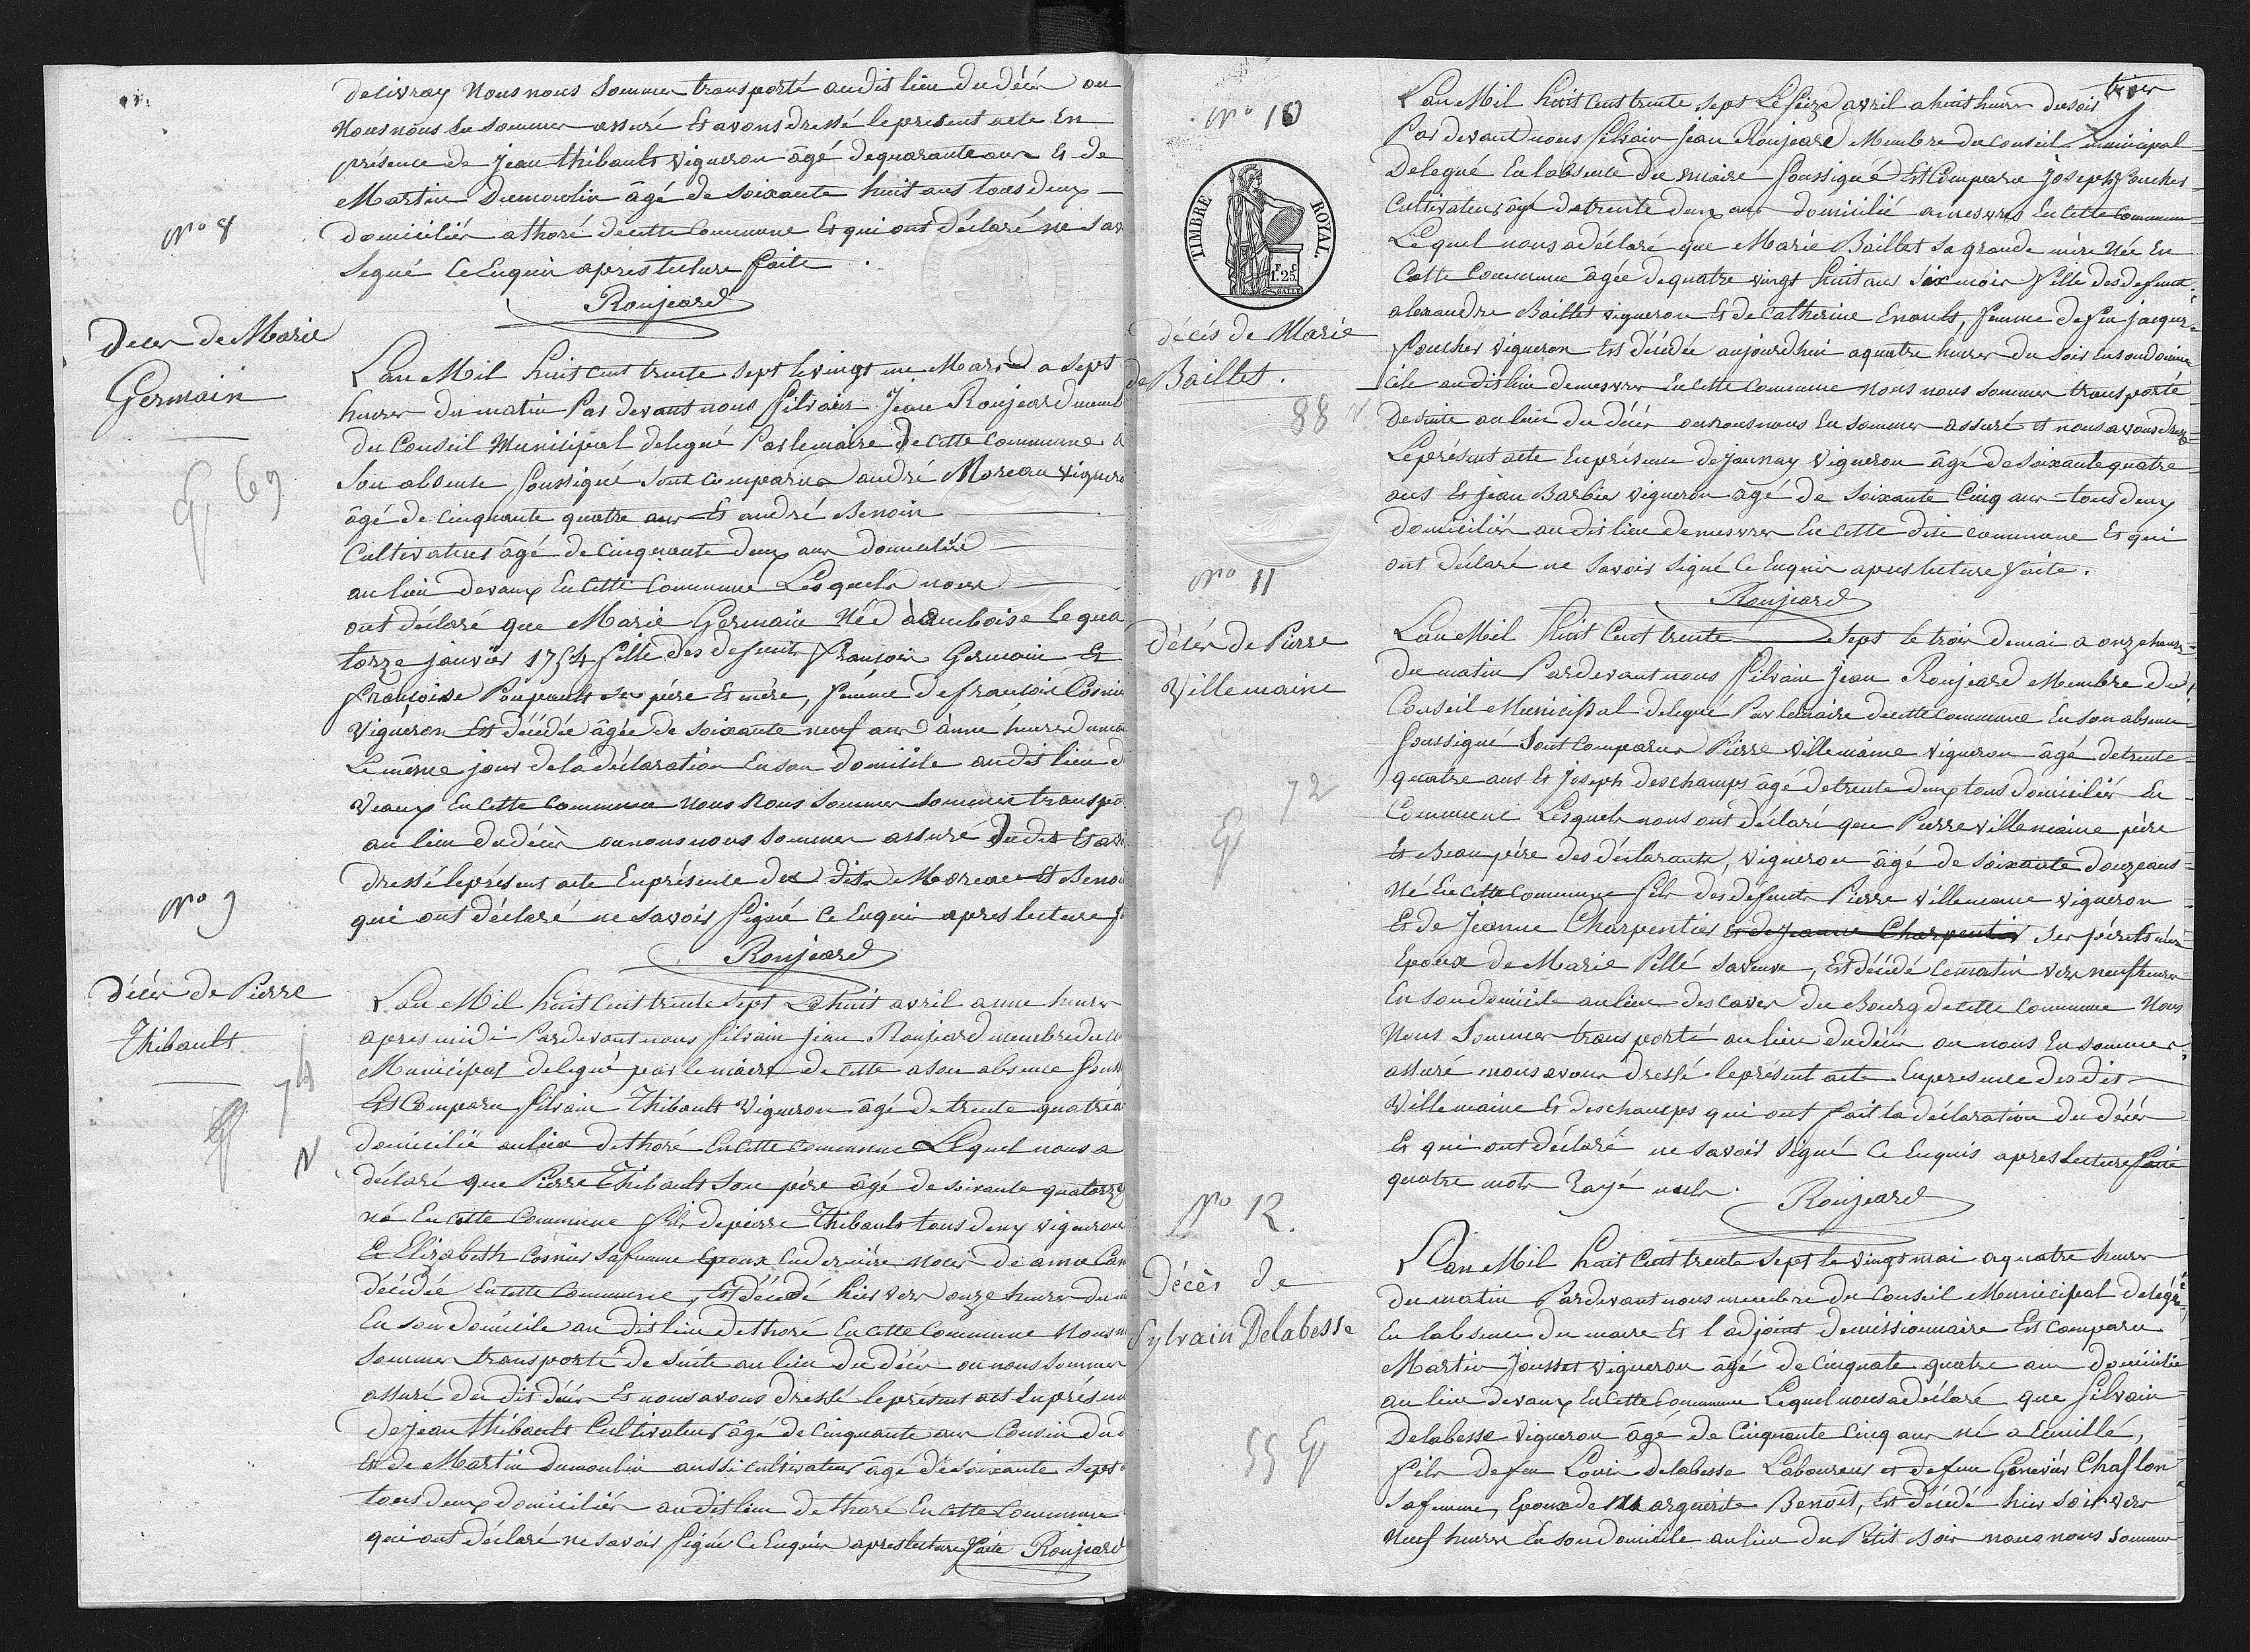 delivray Nous nous Sommes transporté audit lieu du décès ou
Nous nous En sommes assuré Et avons dressé le present acte En
présence de jean thibault vigneron âgé de quarante ans Et de
Martin Dumoulin âgé de Soixante huit ans tous deux
domiciliés a thoré de cette Commune Et qui ont déclaré ne Sav
Signé Ce Enquis apres lecture faite.
Roujeard
No 8
Deces de Marie
Germain
69
Lan Mil huit cent trente sept le vingt un Mars a sept
heures du matin Par devant nous Silvain Jean Roujeard memb
du Conseil Municipal delegué Par le maire De cette Commune
Son absence Soussigné Sont comparus andré Moreau vignero
âgé de Cinquante quatre ans Et andré Benoin
Cultivateur âgé de Cinquante deux ans domicilié
au lieu devaux En Cette Commune Lesquels nous
ont déclaré que Marie Germain Née à amboise le qua
torze janvier 1754 fille des defunts François Germain Et
Françoise Poupault Ses père Et mère, femme de françois Cosnier
Vigneron Est décédée âgée de soixante neuf ans à une heure du ma
Le même jour de la déclaration En son domicile audit lieu d
Veaux En Cette Commune Nous Nous Sommes Sommes transpo
au lieu du décès ou nous nous sommes assuré Dudit Et av
dressé le présent acte En présence des dits Moreau Et Beno
qui ont déclaré ne savoir Signé Ce Enquis apres lecture f
Roujeard
No 9
Décès de Pierre
Thibault
74
N
Lan Mil huit cent trente sept Le huit avril a une heure
apres midi Pardevant nous Silvain jean Roujeard membre du
Municipal delegué par le maire de cette a son absence Souss
Est Comparu Silvain Thibault Vigneron âgé de trente quatre a
domicilié au lieu de thoré En Cette Commune Lequel nous a
déclaré que Pierre Thibault Son père âgé de soixante quatorze
né En Cette Commune fils de pierre Thibault tous deux vigneron
Et Elizabeth Cosnier Sa femme Epoux En derniere noces de anne Can
décédée En cette Commune, Est décédé hier vers onze heures du m
En son domicile au dit lieu de thoré En Cette Commune Nous n
Sommes transporté de Suite au lieu du décès ou nous Sommes
assuré du dit décès Et nous avons dressé le présent act En présen
de jean thibault Cultivateur âgé de Cinquante ans Cousin du d
Et de Martin dumoulin aussi cultivateur âgé de soixante Sept
tous deux domiciliés audit lieu de thoré En cette Commune
qui ont déclaré ne savoir Signé Ce Enquis apres lecture faite Roujeard
trois
No 10
TIMBRE ROYAL
F. C.
1.25
GALLE
décés de Marie
Baillet.
88
Lan Mil huit cent trente sept Le Seize avril a huit heures du soir
Par devant nous Silvain jean Roujeard Membre du Conseil municipal
Delegué En labsence Du maire Soussigné Est Comparu Joseph Foucher
Cultivateur âgé de trente deux ans domicilié a mesvres En Cette Commune
Lequel nous a déclaré que Marie Baillet Sa grande mère Née En
Cette Commune âgée de quatre vingt huit ans Six mois fille des defunts
alexandre Baillet vigneron Et de Catherine Enault, femme de feu jacques
Foucher vigneron Est décédée aujourdhui a quatre heures du Soir En son domi
cile audit lieu demesvres En cette commune nous nous Sommes transporté
de suite au lieu du décès ou nous nous En sommes assuré et nous avons dressé
Le présent acte En présence de jaunay Vigneron âgé de Soixante quatre
ans Et jean Barbier vigneron âgé de Soixante Cinq ans tous deux
domiciliés audit lieu demesvres En cette dite commune Et qui
ont déclaré ne Savoir Signé Ce Enquis apres lecture faite.
Roujeard
No 11
Décès de Pierre
Villemaine
72
Lan Mil huit Cent trente Sept le trois de mai a onze heures
du matin Par devant nous Silvain jean Roujeard Membre du
Conseil Municipal delegué Par le maire de cette commune En son absence
Soussigné Sont Comparus Pierre Villemaine Vigneron âgé de trente
quatre ans Et Joseph deschamps âgé de trente deux tous domiciliés En
Commune Lesquels nous ont déclaré que Pierre Villemaine père
Et Beau père des déclarants, Vigneron âgé de soixante douze ans
Né En Cette Commune fils des défunts Pierre Villemaine vigneron
Et de Jeanne Charpentier et de Jeanne Charpentier Ses père Et mère
Epoux de Marie Pillé sa veuve, Est décédé ce matin vers neuf heures
En son domicile au lieu des caves du Bourg de cette Commune Nous
Nous Sommes transporté au lieu du décès ou nous En sommes
assuré nous avons dressé le présent acte En presence des dits
Villemaine Et deschamps qui ont fait la déclaration du décès
Et qui ont déclaré ne savoir Signé Ce Enquis apres Lecture faite
quatre mots rayé nuls.
Roujeard
No 12.
Décès de
Sylvain Delabesse
55
Lan Mil huit Cent trente Sept le vingt mai a quatre heures
du matin Pardevant nous membre du Conseil Municipal delegué
En labsence du maire Et l'adjoint demissionnaire Est comparu
Martin Jousset vigneron âgé de Cinquante quatre ans domicilié
au lieu devaux En Cette Commune Lequel nous a déclaré que Silvain
Delabesse Vigneron âgé de Cinquante Cinq ans né a Lemillé,
fils de feu Louis Delabesse Laboureur et de feue Geneviève Chaflon
Sa femme, Epoux de Marguerite Benoît, Est décédé hier soir vers
neuf heures En son domicile au lieu du Petit Bois nous nous Sommes